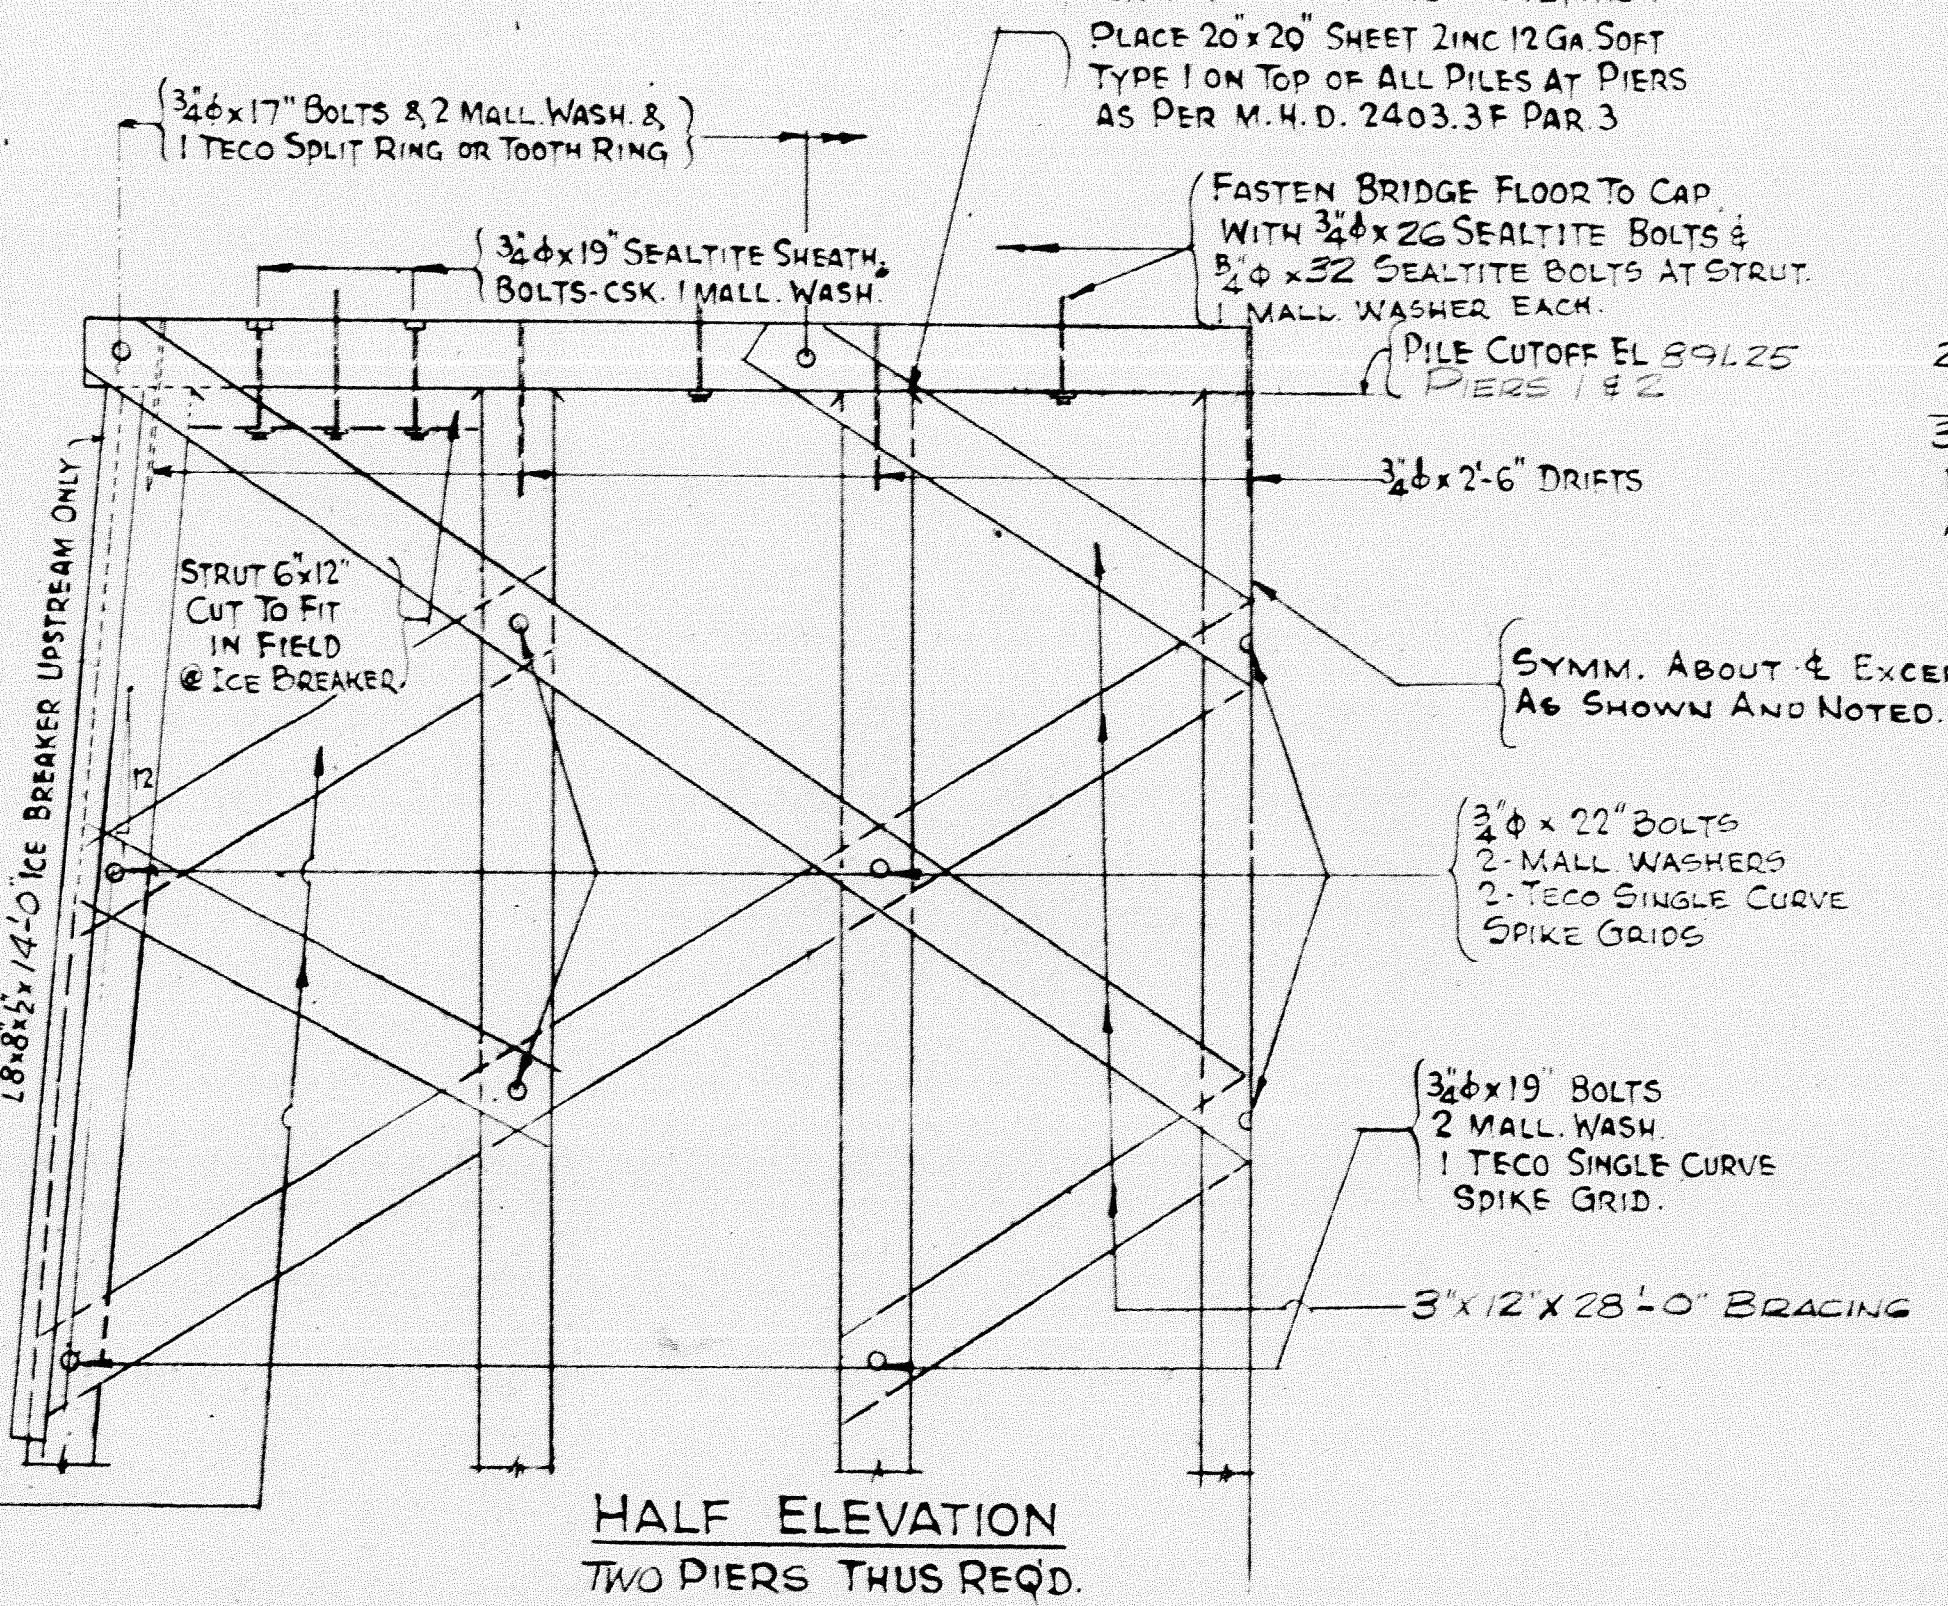 PLACE 20"x20" SHEET ZINC 12 GA. SOFT
TYPE 1 ON TOP OF ALL PILES AT PIERS
AS PER M.H.D. 2403.3F PAR. 3
3/4"ϕ x 17" BOLTS & 2 MALL. WASH. &
1 TECO SPLIT RING OR TOOTH RING
FASTEN BRIDGE FLOOR TO CAP
WITH 3/4"ϕ x 26 SEALTITE BOLTS &
3/4"ϕ x 32 SEALTITE BOLTS AT STRUT.
1 MALL. WASHER EACH.
3/4"ϕ x 19" SEALTITE SHEATH.
BOLTS-CSK. 1 MALL. WASH.
PILE CUTOFF EL 891.25
PIERS 1 & 2
3/4"ϕ x 2'-6" DRIFTS
STRUT 6"x12"
CUT TO FIT
IN FIELD
@ ICE BREAKER.
L8x8x1/2" x 14'-0" ICE BREAKER UPSTREAM ONLY
12
SYMM. ABOUT ℄ EXCE
AS SHOWN AND NOTED.
3/4"ϕ x 22" BOLTS
2-MALL. WASHERS
2-TECO SINGLE CURVE
SPIKE GRIDS
3/4"ϕ x 19" BOLTS
2 MALL. WASH.
1 TECO SINGLE CURVE
SPIKE GRID.
3"x12"x28'-0" BRACING
HALF ELEVATION
TWO PIERS THUS REQ'D.